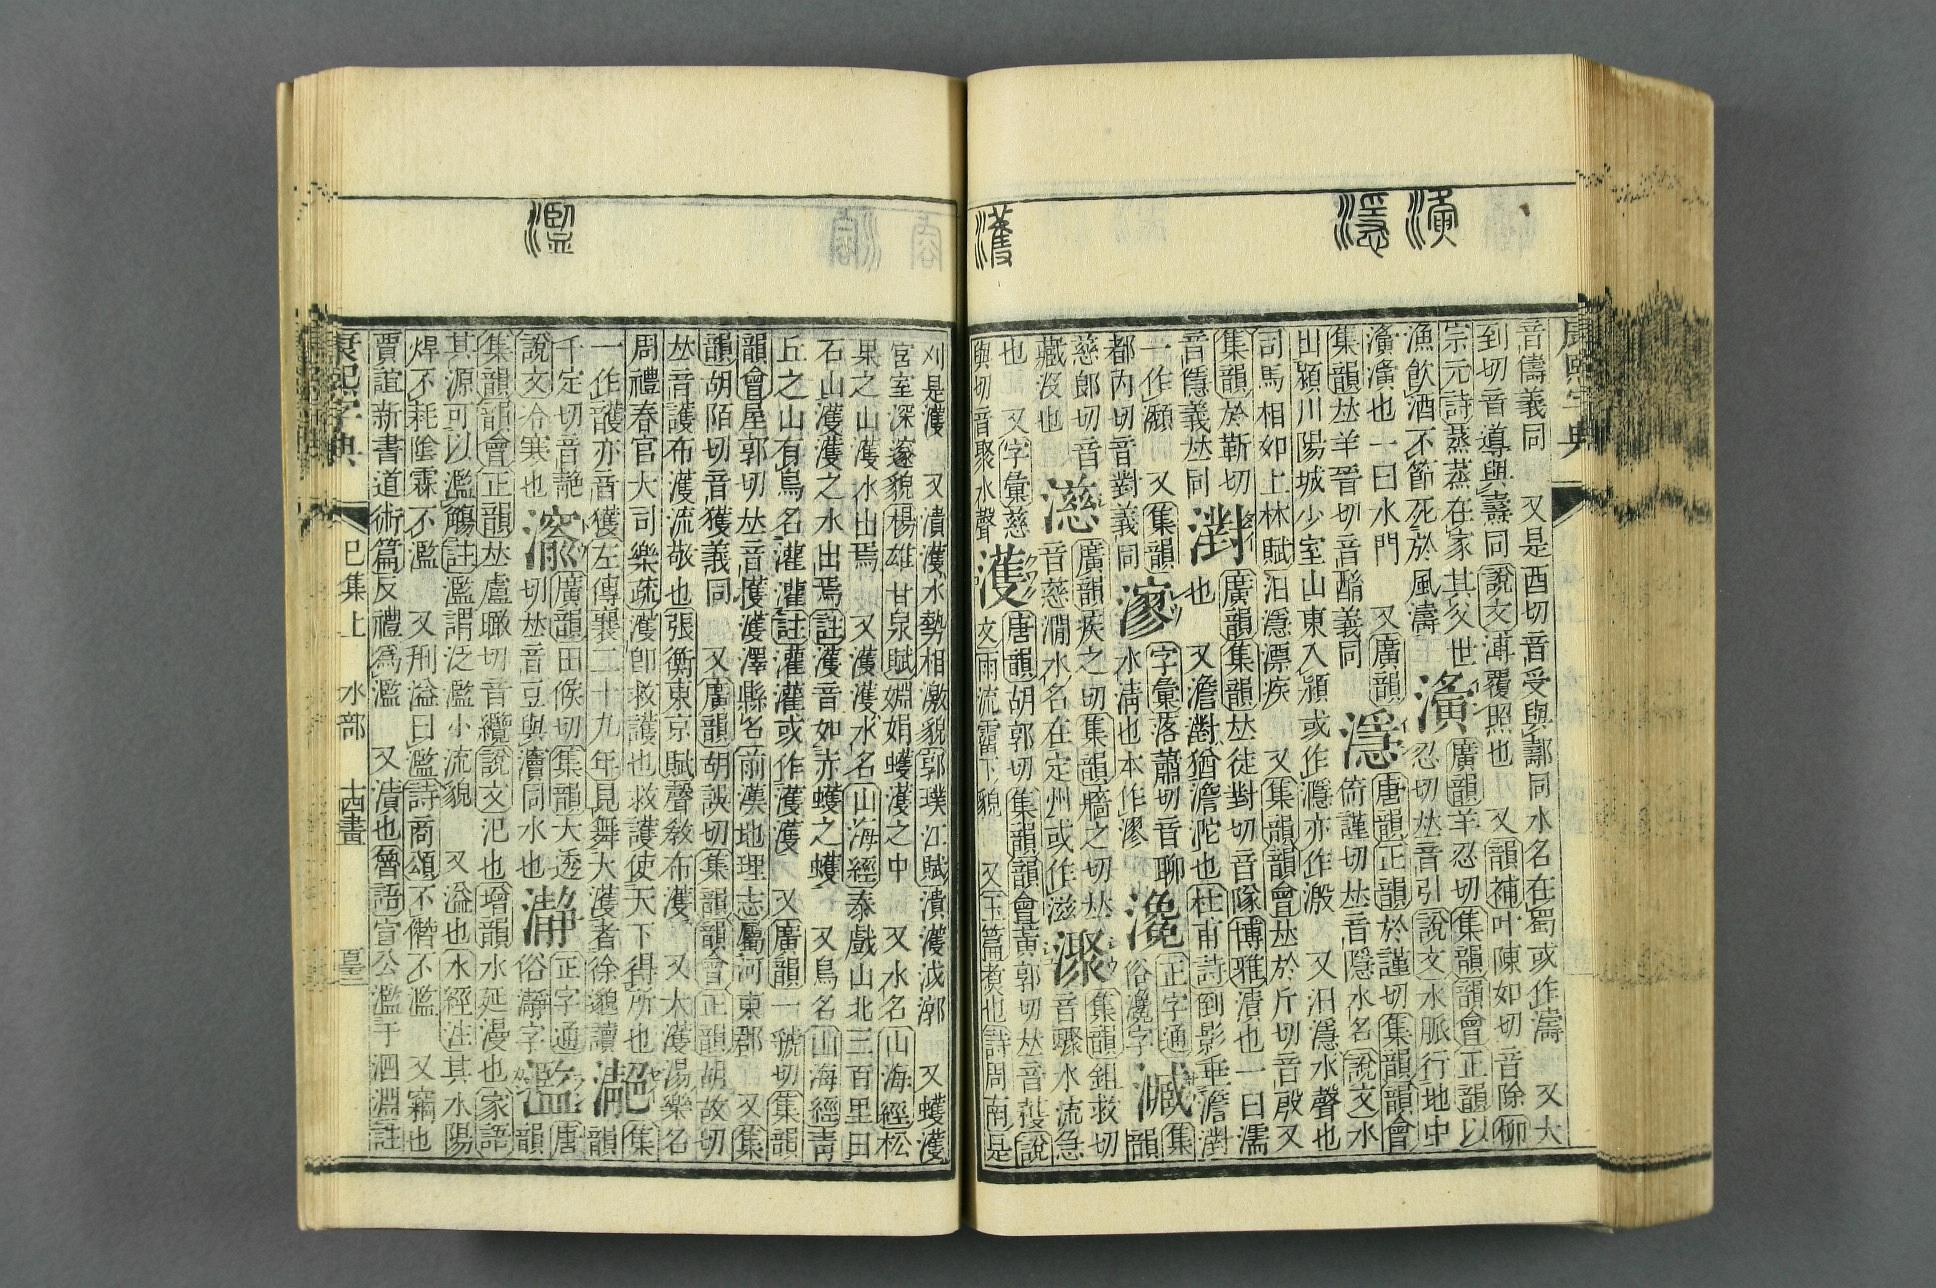 音儔義同 又是酉切音受與𨞪同水名在蜀或作濤 又大
到切音導與燾同說文溥覆照也 又韻補叶陳如切音除柳
宗元詩蒸蒸在家其父世
漁飮酒不節死於風濤
濥
廣韻羊忍切集韻韻會正韻以
忍切𠀤音引說文水脈行地中
濥濥也一曰水門 又廣韻
集韻𠀤羊晉切音酳義同
濦
唐韻正韻於謹切集韻韻會
倚謹切𠀤音隱水名說文水
出潁川陽城少室山東入潁或作㶏亦作溵 又汨濦水聲也
司馬相如上林賦汨濦漂疾 又集韻韻會𠀤於斤切音殷又
集韻於靳切
音隱義𠀤同
濧
廣韻集韻𠀤徒對切音隊博雅濆也一曰濡
也 又澹濧猶澹沱也杜甫詩到影垂澹濧
一作㶔 又集韻
都內切音對義同
㵳
字彙落蕭切音聊
水淸也本作漻
㶕
正字通
俗瀺字
㵴
集
韻
慈郎切音
藏沒也
濨
廣韻疾之切集韻牆之切𠀤
音慈澗水名在定州或作滋
㵵
集韻鉏救切
音驟水流急
也 又字彙慈
與切音聚水聲
濩
唐韻胡郭切集韻韻會黃郭切𠀤音穫說
文雨流霤下貌 又玉篇煑也詩周南是
刈是濩 又濆濩水勢相激貌郭璞江賦濆濩泧漷 又蠖濩
宮室深邃貌楊雄甘泉賦蜵蜎蠖濩之中 又水名山海經松
果之山濩水出焉 又濩濩水名山海經泰戲山北三百里曰
石山濩濩之水出焉註濩音如赤蠖之蠖 又鳥名山海經靑
丘之山有鳥名灌灌註灌灌或作濩濩 又廣韻一虢切集韻
韻會屋郭切𠀤音擭濩澤縣名前漢地理志屬河東郡 又集
韻胡陌切音獲義同 又廣韻胡誤切集韻韻會正韻胡故切
𠀤音護布濩流散也張衡東京賦聲敎布濩 又大濩湯樂名
周禮春官大司樂疏濩卽救護也救護使天下得所也
一作頀亦音獲左傳襄二十九年見舞大濩者徐邈讀
𤄏
集
韻
千定切音艵
說文冷寒也
㵱
廣韻田候切集韻大透
切𠀤音豆與瀆同水也
瀞
正字通
俗瀞字
濫
唐
韻
集韻韻會正韻𠀤盧瞰切音纜說文氾也增韻水延漫也家語
其源可以濫觴註濫謂泛濫小流貌 又溢也水經注其水陽
焊不耗陰霖不濫 又刑溢曰濫詩商頌不僭不濫 又竊也
賈誼新書道術篇反禮爲濫 又漬也魯語宣公濫于泗淵註
康熙字典
巳集上 水部 十四畫